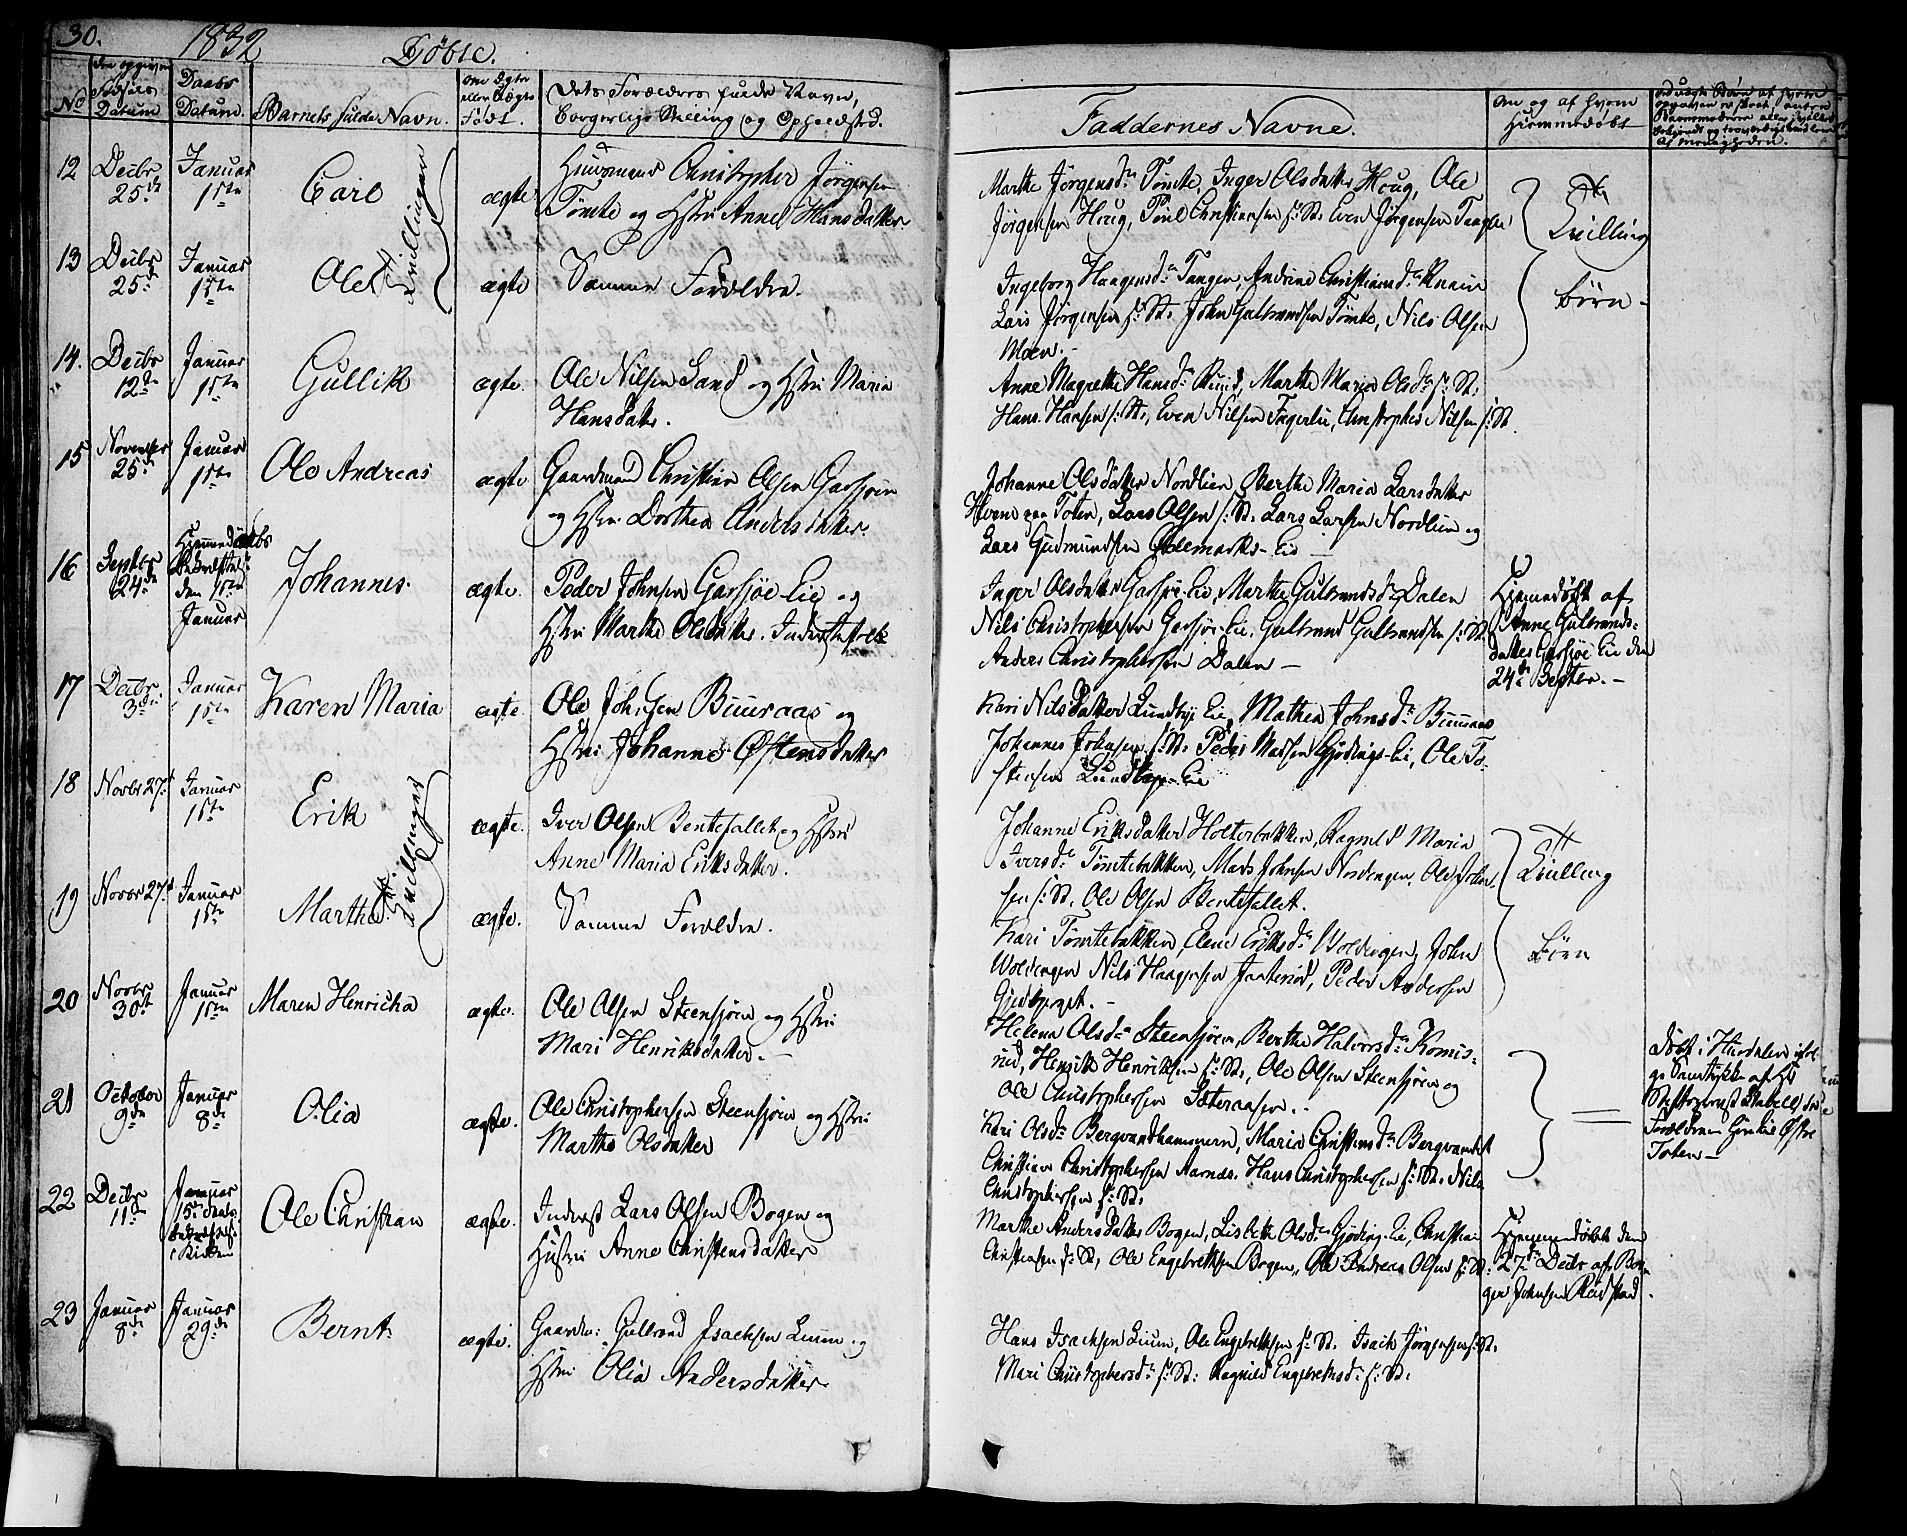 30. 1832 Döbte.
No
Födsels Datum
Daabs Datum
Barnets fulde Navn.
om Ægte eller Uægte Født.
Dets Forældres fulde Navn,
Borgerlige Stilling og Opholdsted.
Faddernes Navne.
Om og af hvem
Hjemmedøbt
12 Decbr 25de Januar 1ste Carl ægte
Huusmand Christopher Jörgensen
Tömte og Hstru Anne Hansdatter
Marthe Jörgensdr Tömte, Inger Olsdatter Houg, Ole
Jörgensen Houg, Poul Christiansen s: St. Even Jörgensen
Tvilling
Tvillinger
13 Decbr 25de Januar 1ste Ole ægte Samme Forældre.
Ingeborg Haagensdr Tangen, Andrine Christiansdr
Lars Jörgensen s: St. John Gulbrandsen Tömte, Nils Olsen
Moen.
börn
14. Decbr 12te Januar 1ste Gullik ægte.
Ole Nilsen Sand og Hstru Maria
Hansdatr.
Anne Magrethe Hansdr Ruud, Marthe Maria Olsdr s: St.
Hans Hansen s: St. Even Nilsen Fingerlie, Christopher Nilsen s: St.
15 November 25de Januar 1ste Ole Andreas ægte
Gaardmand Christian Olsen Garsjöen
og Hstru Dorthea Andersdatter.
Johanne Olsdatter Nordlien, Berthe Maria Larsdatter
paa Toten, Lars Olsen s: St. Lars Larsen Nordlien og
Lars Gudmundsen Ödemarks-Eie
16 Septbr 24de
Hjemmedöbs
den 1ste
Januar
Johannes. ægte.
Peder Johnsen Garsjöe-Eie og
Hstru Marthe Olsdatter. Inderstefolk
Inger Olsdatter Garsjöe-Eie, Marthe Gulbrandsdr Dalen
Nils Christophersen Garsjöe-Eie, Gulbrand Gulbrandsen s: St.
Anders Christophersen Dalen
Hjemmedöbt af
Anne Gulbrands-
datter Garsjöe Eie den
24de Septbr.
17 Decbr. 3die Januar 1ste Karen Maria ægte.
Ole Johnsen Buuraas og
Hstru Johanne Östensdatter
Kari Nilsdatter Lundbye Eie, Mathea Johnsdr Buuraas
Johannes Johnsen s: St. Peder Madsen Gjödings-Eie, Ole To-
stensen Lundbye-Eie
18 Novbr 27d Januar 1ste Erik ægte.
Iver Olsen Bentefallet og Hstru
Anne Maria Eriksdatter.
Johanne Eriksdatter Holterbakken, Ragnild Maria
Iversdr Tömtebakken, Mads Johnsen Nordengen, Ole John-
sen s: St. Ole Olsen Bentefallet.
Tvilling
Tvillinger
19 Novbr 27d Januar 1ste Marthe ægte. Samme Forældre.
Kari Tömtebakken, Elene Eriksdr Woldengen, John
Woldengen Nils Haagensen Jonterud, Peder Andersen
Börn
20 Novbr 30te Januar 1ste Maren Henricha ægte.
Ole Olsen Steensjöen og Hstru
Mari Henriksdatter.
Helena Olsdr Steensjöen, Berthe Halvorsdr Komis-
rud, Henrik Henriksen s: St., Ole Olsen Steensjöen og
Ole Christophersen Sæteraasen.
21 October 9de Januar 8de Olia ægte.
Ole Christophersen Steensjöen og Hstru
Marthe Olsdatter
Kari Olsdr Bergvandhammern, Maria Christensdr Bergvandet
Christian Christophersen Aarnæs. Hans Christophersen s: St. Nils
Christophersen s: St.
Döbt i Hurdalen
Toten
22 Decbr 11te Januar 15de
i Kirken
Ole Christian ægte.
Inderst Lars Olsen Bogen og
Hustru Anne Christensdatter
Marthe Andersdatter Bogen, Lisbeth Olsdr Gjöding-Eie, Christian
Christiansen s: St, Ole Engebrethsen Bogen, Ole Andreas Olsen s: St.
Hjemmedöbt den
27de Decbr af
Johnsen
23 Januar 8de Januar 29de Bernt ægte.
Gaardm: Gulbrand Isachsen Luun og
Hstru Olia Andersdatter
Hans Isachsen Luun, Ole Engebrethsen s: St. Isach Jörgensen s: St.
Mari Christophersdr s: St: Ragnild Engebrethsdr s: St.